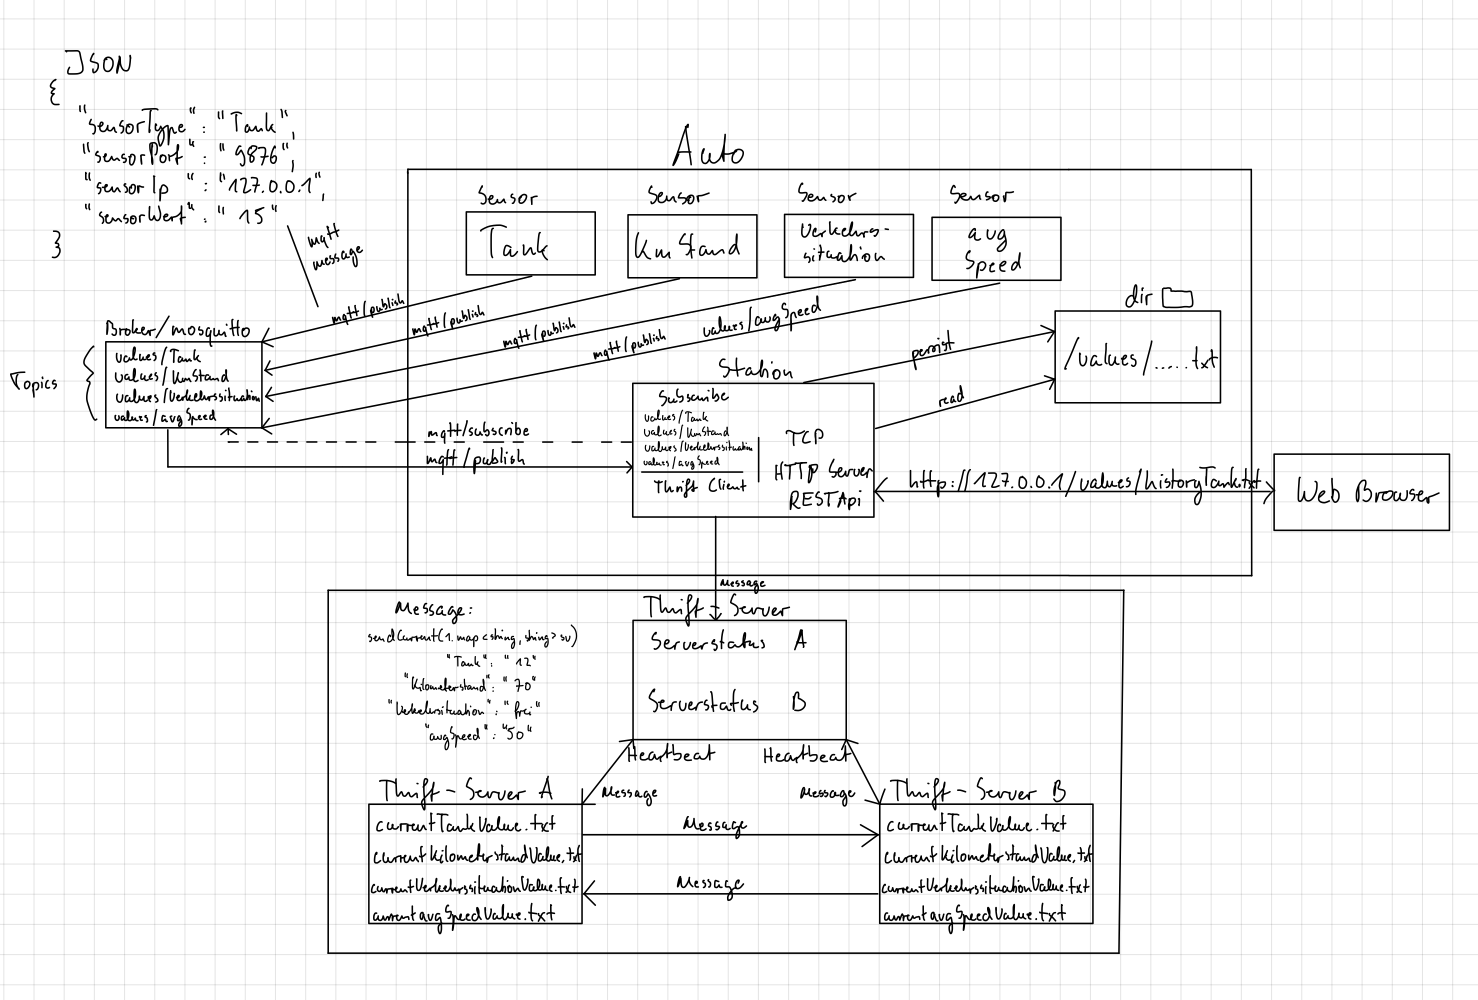 JSON
{
"sensorType" : "Tank",
"sensorPort" : "9876",
"sensorIp" : "127.0.0.1",
"sensorWert" : "15"
}
mqtt
message
Auto
Sensor
Tank
Sensor
Km Stand
Sensor
Verkehrs-
situation
Sensor
avg
Speed
mqtt/publish
mqtt/publish
mqtt/publish
mqtt/publish
values/avgSpeed
dir
/values/.....txt
persist
read
Broker/mosquitto
Topics
values/Tank
values/KmStand
values/Verkehrssituation
values/avgSpeed
mqtt/subscribe
mqtt/publish
Station
Subscribe
values/Tank
values/KmStand
values/Verkehrssituation
values/avgSpeed
Thrift Client
TCP
HTTP Server
RESTApi
http://127.0.0.1/values/historyTank.txt
Web Browser
Message
Message:
sendCurrent(1. map<string, string> sv)
"Tank" : "12"
"Kilometerstand" : "70"
"Verkehrsituation" : "frei"
"avgSpeed" : "50"
Thrift-Server
Serverstatus A
Serverstatus B
Heartbeat
Heartbeat
Message
Message
Thrift-Server A
currentTankValue.txt
currentKilometerstandValue.txt
currentVerkehrssituationValue.txt
currentavgSpeedValue.txt
Message
Message
Thrift-Server B
currentTankValue.txt
currentKilometerstandValue.txt
currentVerkehrssituationValue.txt
currentavgSpeedValue.txt